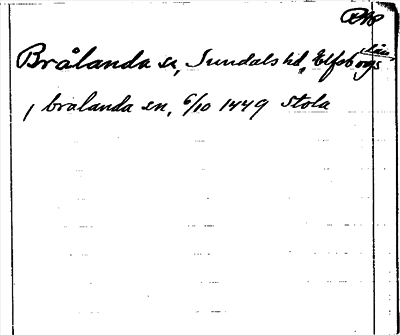 Brålanda sn, Sundals hd, Elfsborgs län
i bralanda sn, 6/10 1449 Stola